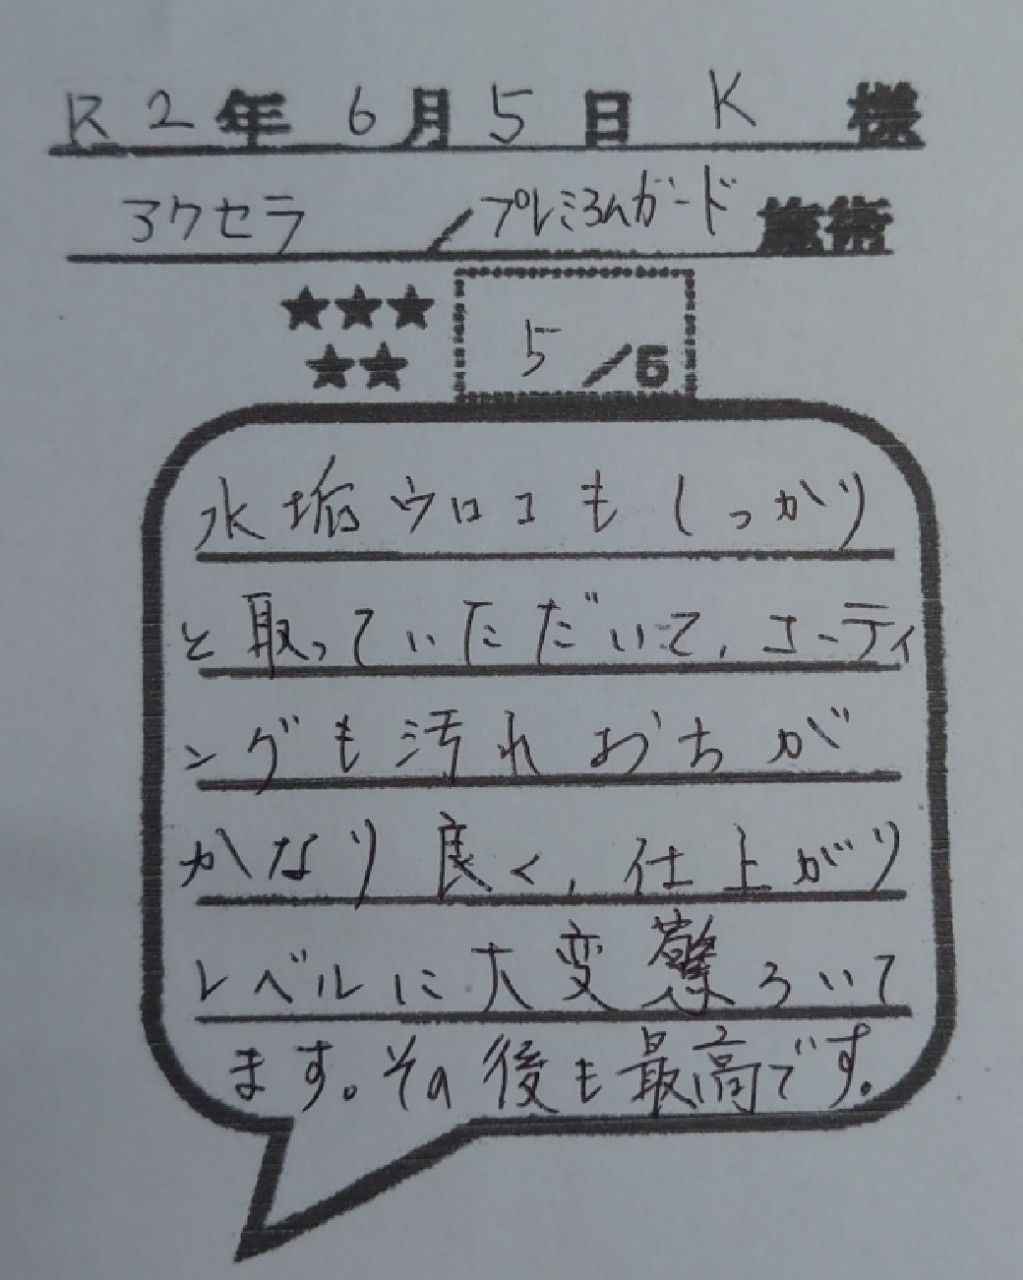 R2年6月5日 K 様
アクセラ / プレミアムガード 施術
★★★
★★
5/5
水垢ウロコもしっかり
と取っていただいて、コーティ
ングも汚れおちが
かなり良く、仕上がり
レベルに大変驚ろいて
ます。その後も最高です。